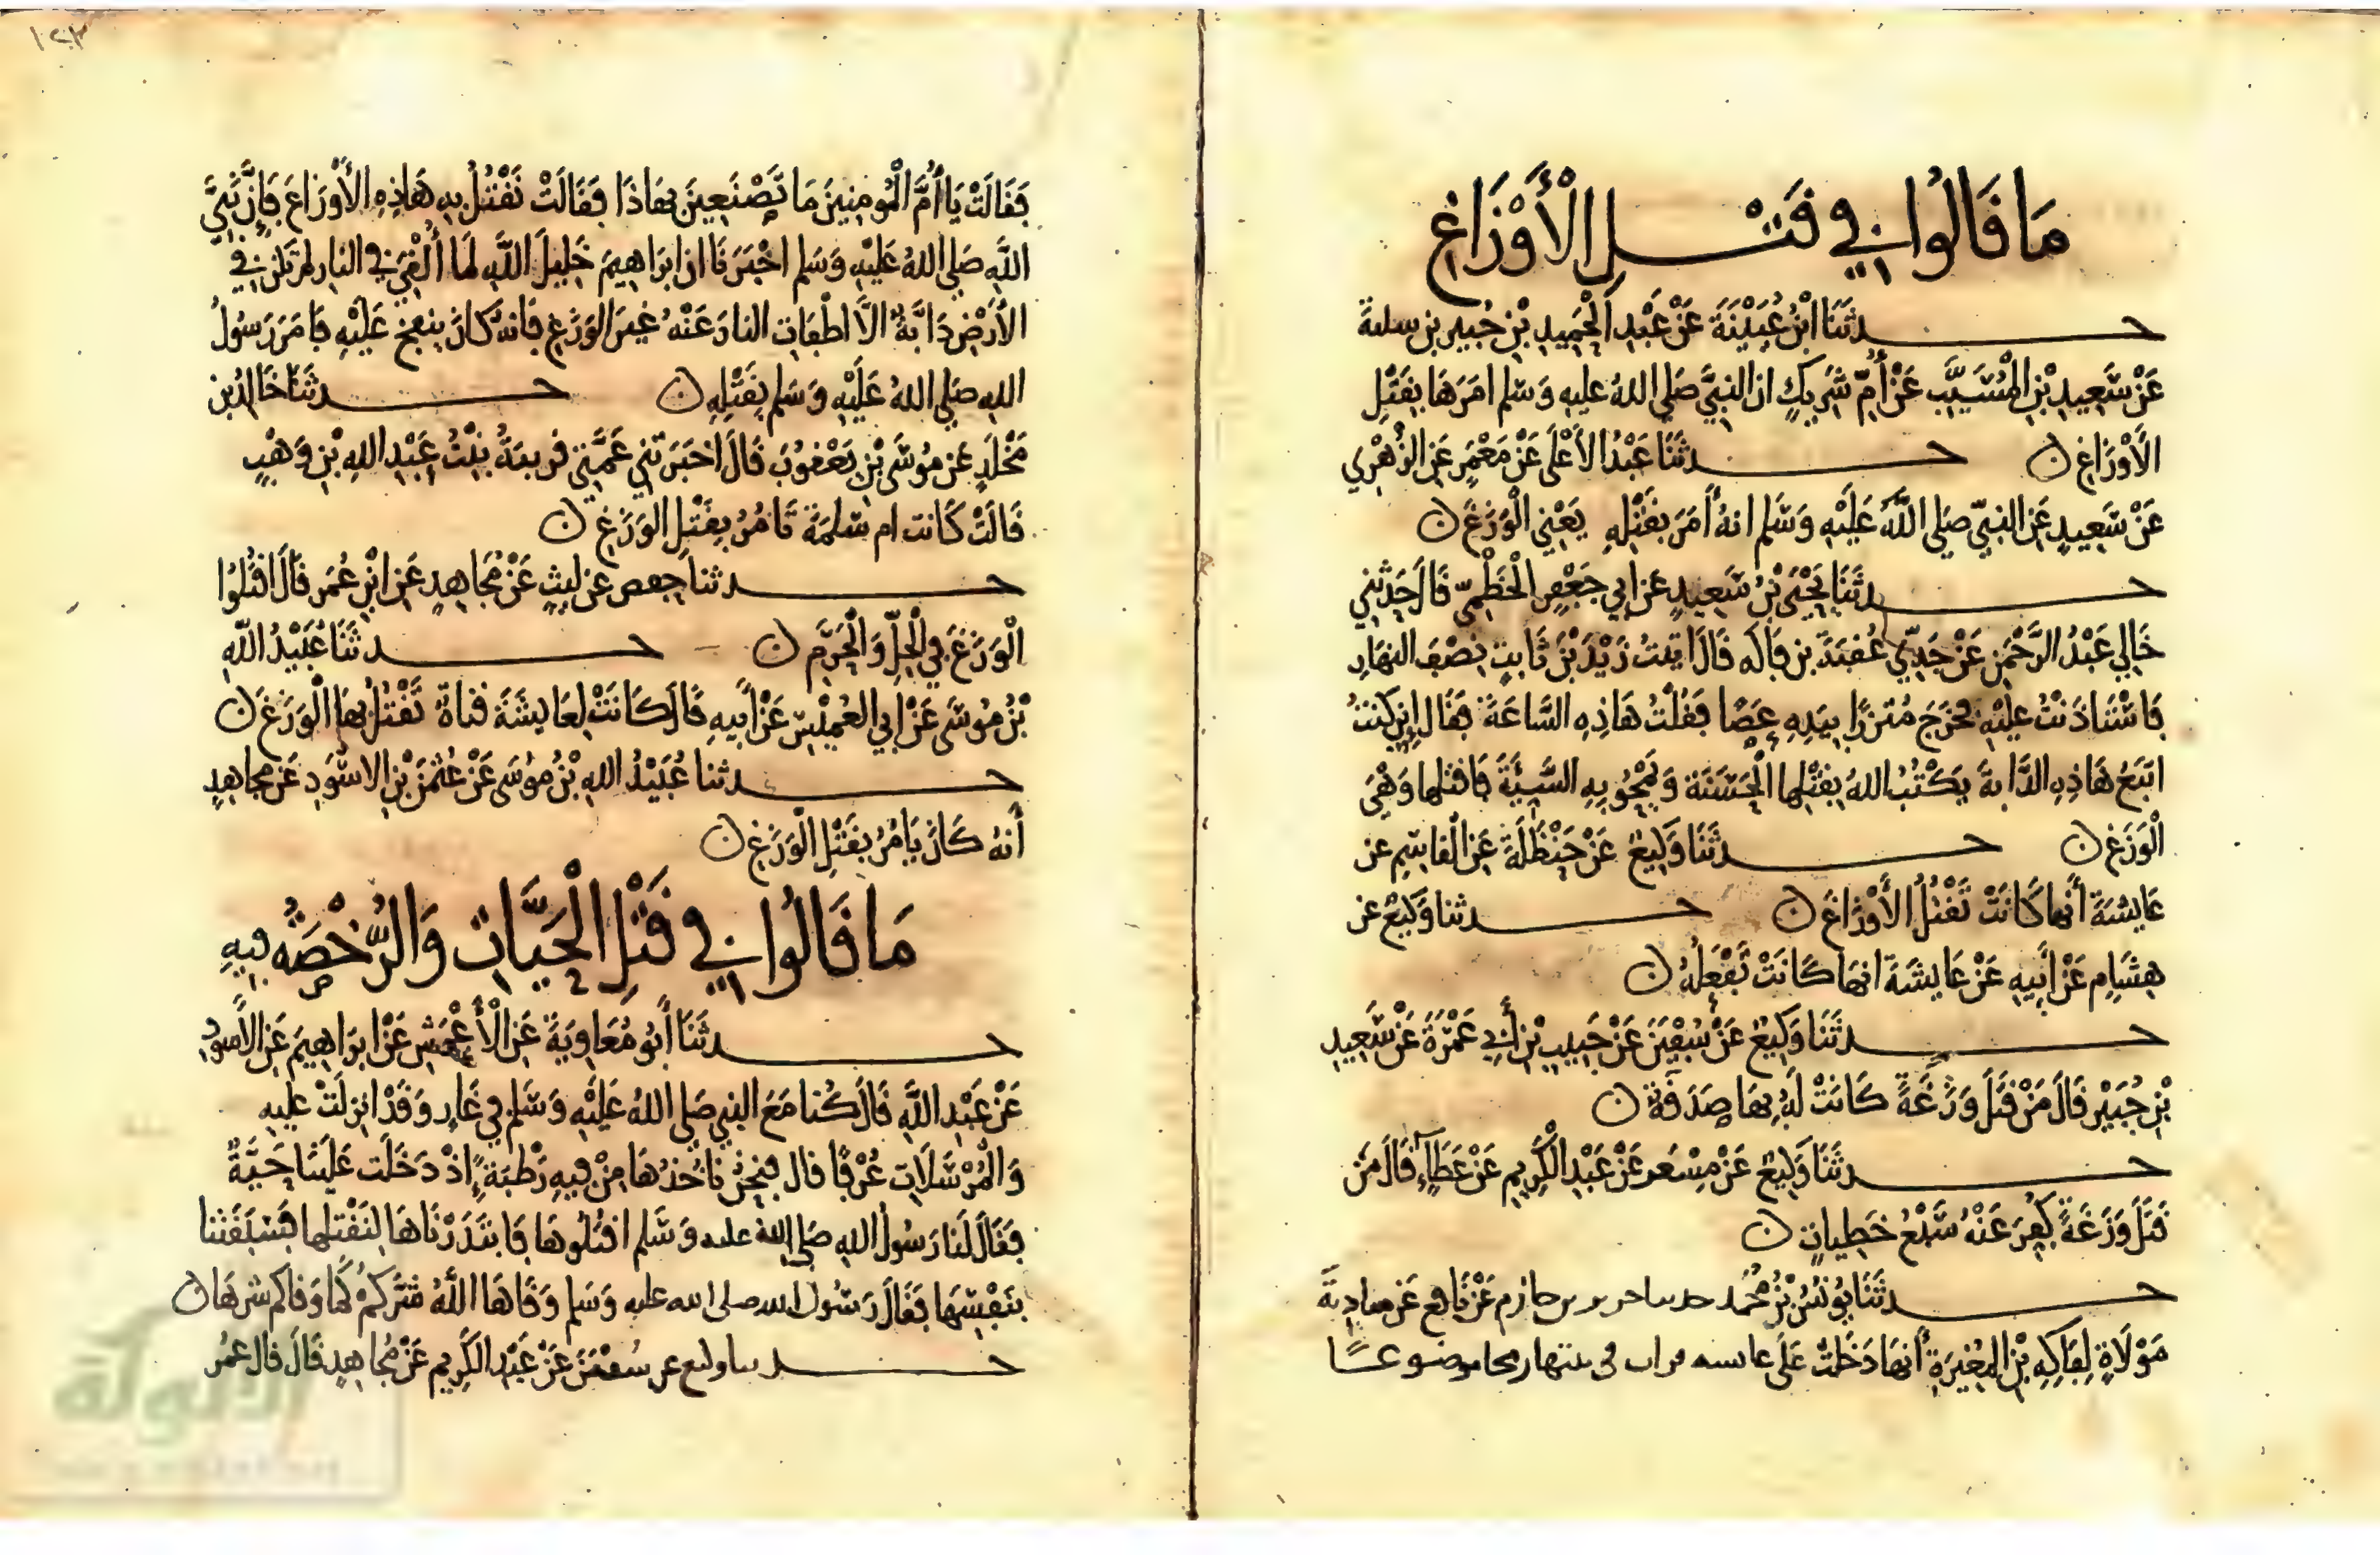 مَا قَالُوا فِي قَتْلِ الْأَوْزَاغِ
حدثَنَا ابْنُ عُيَيْنَةَ عَنْ عَبْدِ الْحَمِيدِ بْنِ جُبَيرِ بن سلمة
عَنْ سَعِيدِ بْنِ الْمُسَيَّبِ عَنْ أُمِّ شَرِيكٍ ان النبيَّ صَلى اللهُ عليهِ وَسَلم امَرَهَا بِقَتْلِ
الأَوْزَاغِ ن حدثَنَا عَبْدُ الأَعْلَى عَنْ مَعْمَرٍ عَنِ الزُّهْرِي
عَنْ سَعِيدٍ عَنِ النبيّ صَلى اللَّهُ عَلَيْهِ وَسَلم انهُ أَمَرَ بِقَتْلِهِ يَعْنِي الْوَزَغَ ن
حدثَنَا يَحْيَى بْنُ سَعِيدٍ عن ابي جَعْفَرٍ الْخَطْمِيّ قَالَ حَدثَنِي
خَالِي عَبْدُ الرَّحْمَنِ عَنْ جَدِّي عُقبَةَ بن فَاكه قَالَ اتيتُ زَيْدَ بْنَ ثَابِتٍ نِصْفَ النهَارِ
فَاسْتَاذَنْتُ عليْهِ فَخرَجَ مُتزرًا بِيَدِهِ عَصًا فَقُلْتُ هَاذِهِ السَّاعَةَ فقَالَ اني كنتُ
اتبَعُ هَاذِهِ الدَّابةَ يَكْتُبُ اللهُ بِقَتْلِها الْحَسَنَةَ وَيَمْحُو بِهِ السَّيِئَةَ فاقتلها وَهْيَ
الْوَزَغ ن حدثَنَا وَكِيعٌ عَنْ حَنْظَلَةَ عَنِ القاسِمِ عن
عَايِشَةَ أَنهَا كَانَتْ تَقْتُلُ الأَوْزَاغَ ن حدثنا وَكِيعٌ عن
هِشَامٍ عَنْ ابِيهِ عَنْ عَايشَةَ انهَا كَانَتْ تَفْعَلُهُ ن
حدثَنَا وَكِيعٌ عَنْ سُفْيَنَ عَنْ حَبِيبِ بْنِ أَبِي عَمْرَةَ عَنْ سَعِيدِ
بْنِ جُبَيْرٍ قَالَ مَنْ قَتَلَ وَزَغَةً كَانَتْ لَهُ بِهَا صَدَقَة ن
حدثَنَا وَكِيعٌ عَنْ مِسْعَرٍ عَنْ عَبْدِ الْكَرِيمِ عَنْ عَطَاءٍ قَالَ مَن
قَتَلَ وَزَغَةً كُفِّرَ عَنْهُ سَبْعُ خَطِيَاتٍ ن
حدثَنَا يُونُسُ بْنُ مُحَمد حدسا حرىر بن حازم عَنْ نَافِع عَنْ سابِةَ
مَوْلَاةٍ لِفَاكِهِ بْنِ المُغِيرَةِ أَنهَا دَخَلَتْ عَلَى عايسه فرات في بيتها رمحا موضوعًا
فَقَالَتْ يَا أُمَّ الْمُومِنِينَ مَا تَصْنَعِينَ بهَاذَا فَقَالَتْ نَقْتُلُ بِهِ هَاذِهِ الأَوْزَاغَ فَإِنَّ نَبِيَّ
اللَّهِ صَلى اللهُ عَلَيْهِ وَسَلم اخْبَرَنَا ان ابرَاهِيمَ خَلِيلَ اللَّهِ لَما أُلْقِيَ في النارِ لم تكن فِي
الأَرْضِ دَابَّةٌ الاَّ اطْفَاتِ النارَ عَنْهُ غيرَ الوَزَغِ فانهُ كَانَ ينفخ عَلَيْهِ فَامَرَ رَسُولُ
اللهِ صَلى اللهُ عَلَيْهِ وَسَلم بِقَتْلِهِ ن حدثنَا خَالِدُ بن
مَخْلَدٍ عَن مُوسَى بْنِ يَعْقُوبَ قَالَ اخبَرَتْنِي عَمَّتِي قريبَةُ بِنْتُ عَبْدِ اللهِ بْنِ وَهْبٍ
قَالَتْ كَانت ام سَلمَةَ تَامُرُ بِقَتْلِ الوَزَغِ ن
حدثنا حفص عن ليثٍ عَنْ مُجَاهِدٍ عَنِ ابْنِ عُمَر قَالَ اقْتُلُوا
الْوَزَغَ فِي الْحِلِّ وَالْحَرَمِ ن حدثَنَا عُبَيْدُ اللَّهِ
بْنُ مُوسَى عَنْ ابي العُمَيْسِ عَنْ أَبِيهِ قَالَ كَانَتْ لِعَايشَةَ قناةٌ تَقْتُلُ بهَا الْوَزَغَ ن
حدثنا عُبَيْدُ اللهِ بْنُ مُوسَى عَنْ عُثمَنَ بْنِ الاسْوَدِ عَن مجاهِدٍ
أَنهُ كَانَ يَامُرُ بِقَتْلِ الْوَزَغِ ن
مَا قَالُوا فِي قَتْلِ الْحَيَّاتِ وَالرُّخْصَةُ فِيهِ
حدثَنَا أَبُو مُعَاوِيَةَ عَنِ الأَعْمَشِ عَنْ ابرَاهِيمَ عَنِ الأسودِ
عَنْ عَبْدِ اللَّهِ قَالَ كُنا مَعَ النبي صَلى اللهُ عَلَيْهِ وَسَلم فِي غَارٍ وَقَدْ انزِلَتْ عليهِ
وَالْمُرْسَلَاتِ عُرْفًا قال فنَحْنُ ناخُذهَا مِنْ فِيهِ رَطْبَةً اذْ دَخَلَت عَلَيْنَا حَيَّةٌ
فَقَالَ لَنَا رَسُولُ اللهِ صَلى اللهُ عليه وَسَلم اقْتُلُوهَا فَابتَدَرْنَاهَا لِنَقْتلها فَسَبَقَتْنا
بنَفْسِهَا فَقَالَ رَسُول الله صلى الله عليه وَسَلم وَقَاهَا اللَّهُ شَرَّكمُ كَما وَقاكم شرهَا ن
حدىنا وكيع عن سُفْيَنَ عَنْ عَبْدِ الكَرِيمِ عَنْ مُجاهِدٍ قَالَ قال عمُر